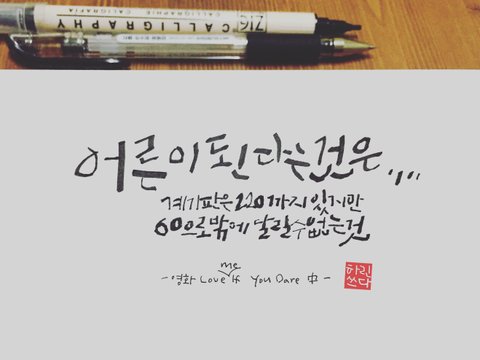 ZIG CALLIGRAPHY
CALLIGRAPHIE
CALIGRAFIA
어른이 된다는 것은,,,
계기판은 220까지 있지만
60으로 밖에 달릴 수 없는 것
me
- 영화 Love If You Dare 中 -
하린
쓰다